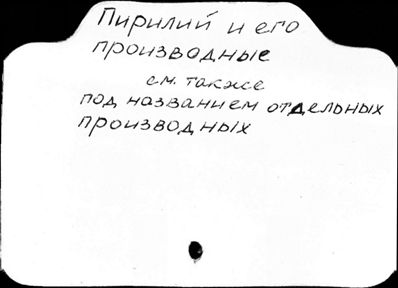 Пирилий и его
производные
см. также
под названием отдельных
производных